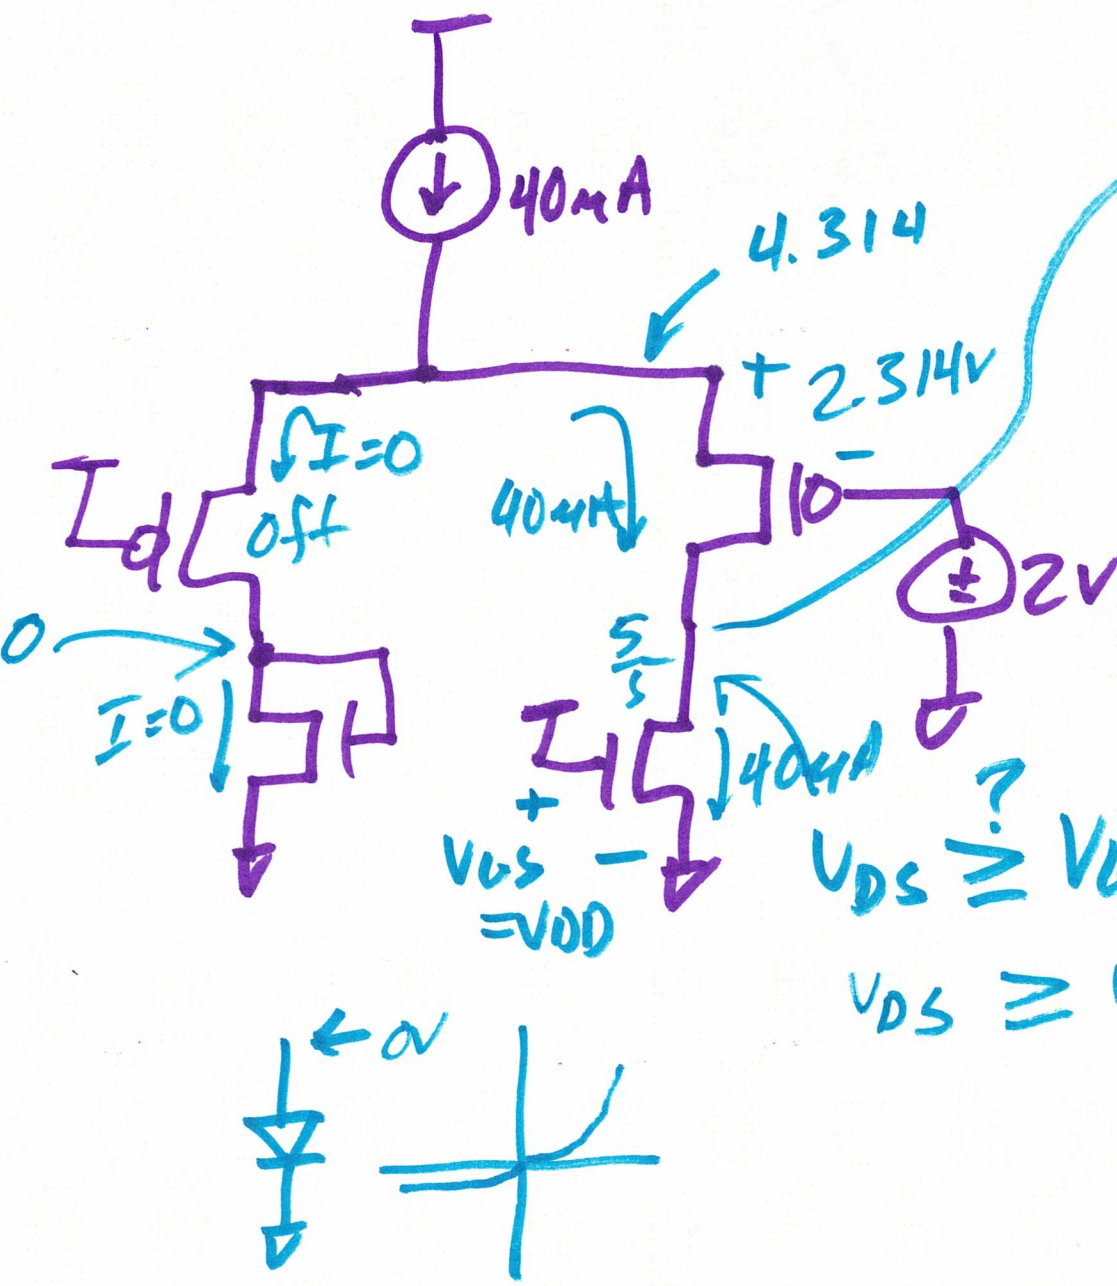 40μA
4.314
+ 2.314V
-
I=0
off
40μA
2V
0
5/5
I=0
40μA
+
VGS -
=VDD
?
VDS ≥ VG
VDS ≥
← 0V